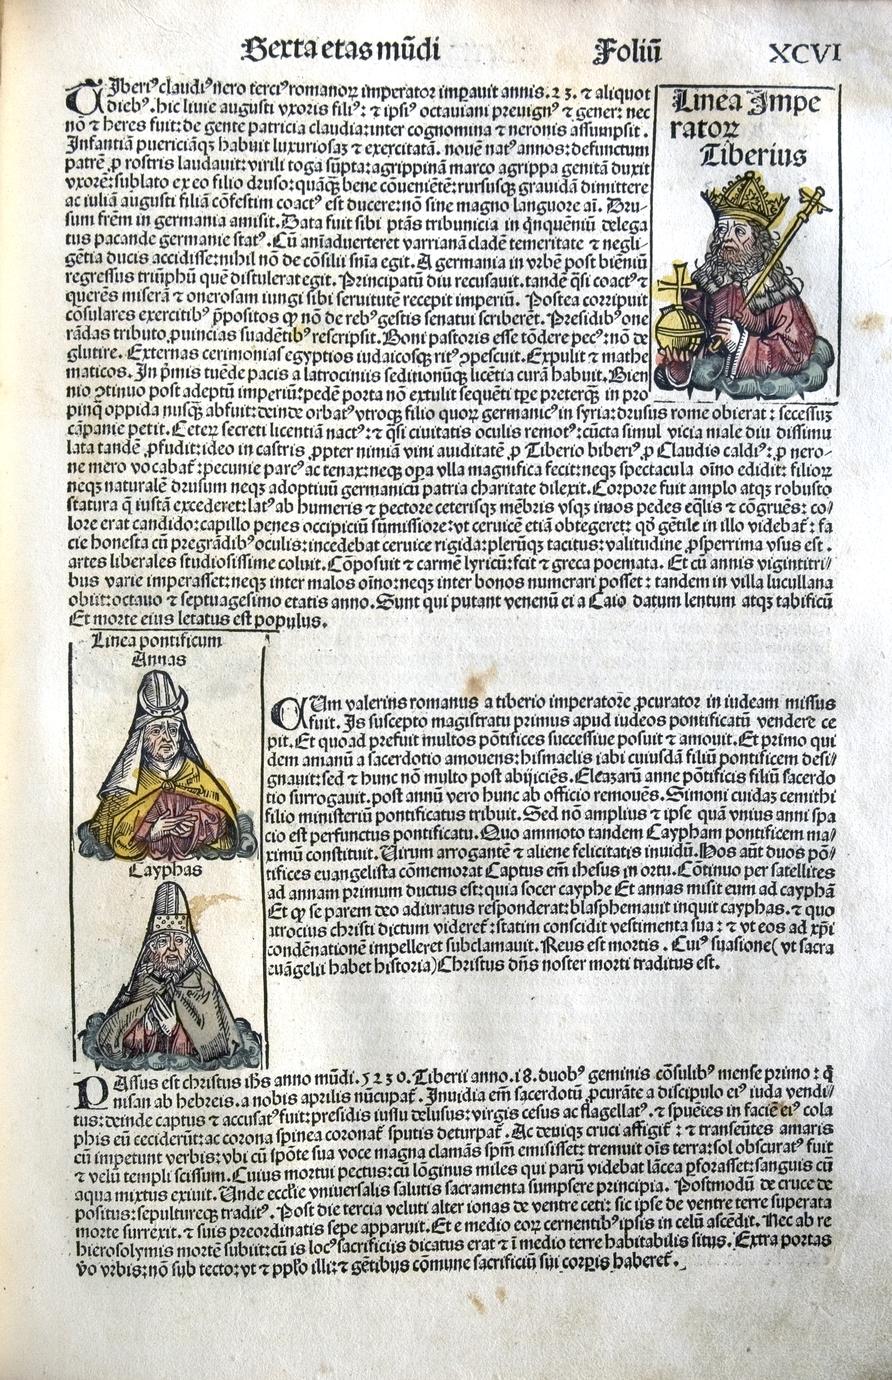 Sexta etas mūdi Foliū XCVI
Linea Impe
ratoꝝ
Tiberius
Tiberiꝰ claudiꝰ nero terciꝰ romanoꝝ imperator imꝑauit annis.23. ⁊ aliquot
diebꝰ. hic liuie augusti vxoris filiꝰ: ⁊ ipsiꝰ octauiani preuignꝰ ⁊ gener: nec
nō ⁊ heres fuit: de gente patricia claudia: inter cognomina ⁊ neronis assumpsit.
Infantiā puericiāqꝫ habuit luxuriosaꝫ ⁊ exercitatā. nouē natꝰ annos: defunctum
patrē ꝓ rostris laudauit: virili toga sūpta: agrippinā marco agrippa genitā duxit
vxorē: sublato ex eo filio druso: quāqꝫ bene cōueniētē: rursusqꝫ grauidā dimittere
ac iuliā augusti filiā cōfestim coactꝰ est ducere: nō sine magno languore aī. Dru-
sum frēm in germania amisit. Data fuit sibi ptās tribunicia in qͥnquēniū delega
tus pacande germanie statꝰ. Cū aīaduerteret varrianā cladē temeritate ⁊ negli-
gētia ducis accidisse: nihil nō de cōsilii snīa egit. A germania in vrbē post bieniū
regressus triūphū quē distulerat egit. Principatū diu recusauit. tandē qͣsi coactꝰ ⁊
querēs miserā ⁊ onerosam iungi sibi seruitutē recepit imperiū. Postea corripuit
cōsulares exercitibꝰ p̄positos qꝙ nō de rebꝰ gestis senatui scriberēt. Presidibꝰ one
rādas tributo ꝓuincias suadētibꝰ rescripsit. Boni pastoris esse tōdere pecꝰ: nō de
glutire. Externas cerimonias egyptios iudaicosqꝫ ritꝰ ꝯpescuit. Expulit ⁊ mathe
maticos. In p̄mis tuēde pacis a latrociniis seditionūqꝫ licētia curā habuit. Bien
nio ꝯtinuo post adeptū imperiū: pedē porta nō extulit sequēti tꝑe preterqꝫ in pro
pinqͣ oppida nusqͣꝫ abfuit: deinde orbatꝰ vtroqꝫ filio quoꝝ germanicꝰ in syria: drusus rome obierat: secessuꝫ
cāpanie petit. Ceteꝝ secreti licentiā nactꝰ: ⁊ qͣsi ciuitatis oculis remotꝰ: cūcta simul vicia male diu dissimu
lata tandē ꝓfudit: ideo in castris ꝓpter nimiā vini auiditatē ꝓ Tiberio biberiꝰ, ꝓ Claudio caldiꝰ: ꝓ nero-
ne mero vocabat̄: pecunie parcꝰ ac tenax: neqꝫ oꝑa vlla magnifica fecit: neqꝫ spectacula oīno edidit: filioꝝ
neqꝫ naturalē drusum neqꝫ adoptiuū germanicū patria charitate dilexit. Corpore fuit amplo atqꝫ robusto
statura qͣ iustā excederet: latꝰ ab humeris ⁊ pectore ceterisqꝫ mēbris vsqꝫ imos pedes eq̄lis ⁊ cōgruēs: co/
lore erat candido: capillo penes occipiciū sūmissiore: vt ceruicē etiā obtegeret: qd̄ gētile in illo videbat̄: fa
cie honesta cū pregrādibꝰ oculis: incedebat ceruice rigida: plerūqꝫ tacitus: valitudine ꝓsperrima vsus est.
artes liberales studiosissime coluit. Cōposuit ⁊ carmē lyricū: fcit ⁊ greca poemata. Et cū annis vigintitri/
bus varie imperasset: neqꝫ inter malos oīno: neqꝫ inter bonos numerari posset: tandem in villa lucullana
obiit: octauo ⁊ septuagesimo etatis anno. Sunt qui putant venenū ei a Caio datum lentum atqꝫ tabificū
Et morte eius letatus est populus.
Linea pontificum
Annas
Cayphas
Cum valerius romanus a tiberio imperatore ꝓcurator in iudeam missus
fuit. Is suscepto magistratu primus apud iudeos pontificatū vendere ce
pit. Et quoad prefuit multos pōtifices successiue posuit ⁊ amouit. Et primo qui
dem amanū a sacerdotio amouens: hismaelis iabi cuiusdā filiū pontificem desi/
gnauit: sed ⁊ hunc nō multo post abijciēs. Eleazarū anne pōtificis filiū sacerdo
tio surrogauit. post annū vero hunc ab officio remouēs. Simoni cuidaꝫ cemithi
filio ministeriū pontificatus tribuit. Sed nō amplius ⁊ ipse quā vnius anni spa
cio est perfunctus pontificatu. Quo ammoto tandem Caypham pontificem ma/
ximū constituit. Virum arrogantē ⁊ aliene felicitatis inuidū. Hos aūt duos pō/
tifices euangelista cōmemorat Captus em̄ ihesus in ortu. Cōtinuo per satellites
ad annam primum ductus est: quia socer cayphe Et annas misit eum ad cayphā
Et qꝙ se parem deo adiuratus responderat: blasphemauit inquit cayphas. ⁊ quo
atrocius christi dictum videret̄: statim conscidit vestimenta sua: ⁊ vt eos ad xp̄i
condēnationē impelleret subclamauit. Reus est mortis. Cuiꝰ suasione( vt sacra
euāgelii habet historia) Christus dn̄s noster morti traditus est.
Passus est christus ihs anno mūdi.5230. Tiberii anno.18. duobꝰ geminis cōsulibꝰ mense primo: qͥ
nisan ab hebreis. a nobis aprilis nūcupat̄. Inuidia em̄ sacerdotū ꝓcurāte a discipulo eiꝰ iuda vendi/
tus: deinde captus ⁊ accusatꝰ fuit: presidis iussu delusus: virgis cesus ac flagellatꝰ. ⁊ spuētes in faciē eiꝰ cola
phis eū ceciderūt: ac corona spinea coronat̄ sputis deturpat̄. Ac deniqꝫ cruci affigit̄: ⁊ trāseūtes amaris
cū impetunt verbis: vbi cū spōte sua voce magna clamās spm̄ emisisset: tremuit oīs terra: sol obscuratꝰ fuit
⁊ velū templi scissum. Cuius mortui pectus: cū lōginus miles qui parū videbat lācea ꝑforasset: sanguis cū
aqua mixtus exiuit. Unde eccl̄ie vniuersalis salutis sacramenta sumpsere principia. Postmodū de cruce de
positus: sepultureqꝫ traditꝰ. Post die tercia veluti alter ionas de ventre ceti: sic ipse de ventre terre superata
morte surrexit. ⁊ suis preordinatis sepe apparuit. Et e medio eoꝝ cernentibꝰ ipsis in celū ascēdit. Nec ab re
hierosolymis mortē subiit: cū is locꝰ sacrificiis dicatus erat ⁊ ī medio terre habitabilis situs. Extra portas
v̄o vrbis: nō sub tecto: vt ⁊ pp̄lo illi: ⁊ gētibus cōmune sacrificiū sui corꝑis haberet̄.